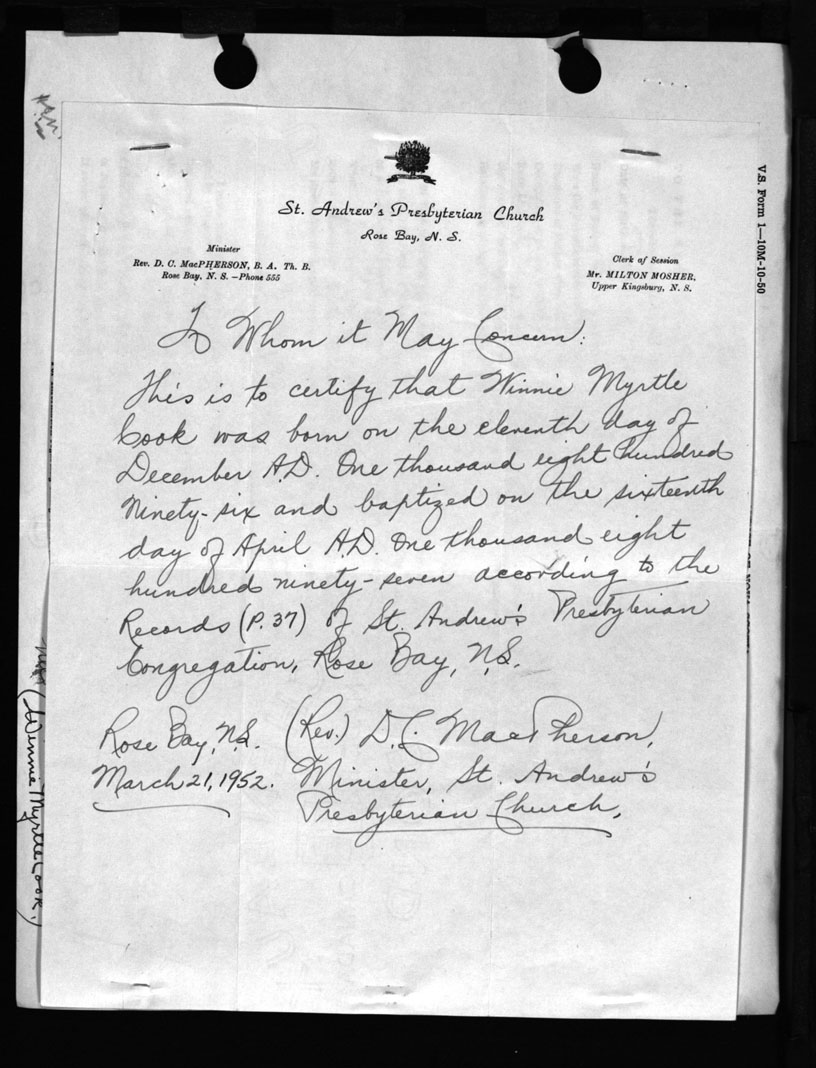 St. Andrew's Presbyterian Church
Rose Bay, N. S.
Minister
Rev. D. C. MacPHERSON, B. A. Th. B.
Rose Bay, N. S. —Phone 555
Clerk of Session
Mr. MILTON MOSHER,
Upper Kingsburg, N. S.
V.S. Form 1—10M-10-50
To Whom it May Concern:
This is to certify that Winnie Myrtle
Cook was born on the eleventh day of
December A.D. One thousand eight hundred
Ninety-six and baptized on the sixteenth
day of April A.D. One thousand eight
hundred ninety-seven according to the
Records (P. 37) of St. Andrew's Presbyterian
Congregation, Rose Bay, N.S.
Rose Bay, N.S. (Rev.) D.C. MacPherson,
March 21, 1952. Minister, St. Andrew's
Presbyterian Church.
(Winnie Myrtle Cook.)